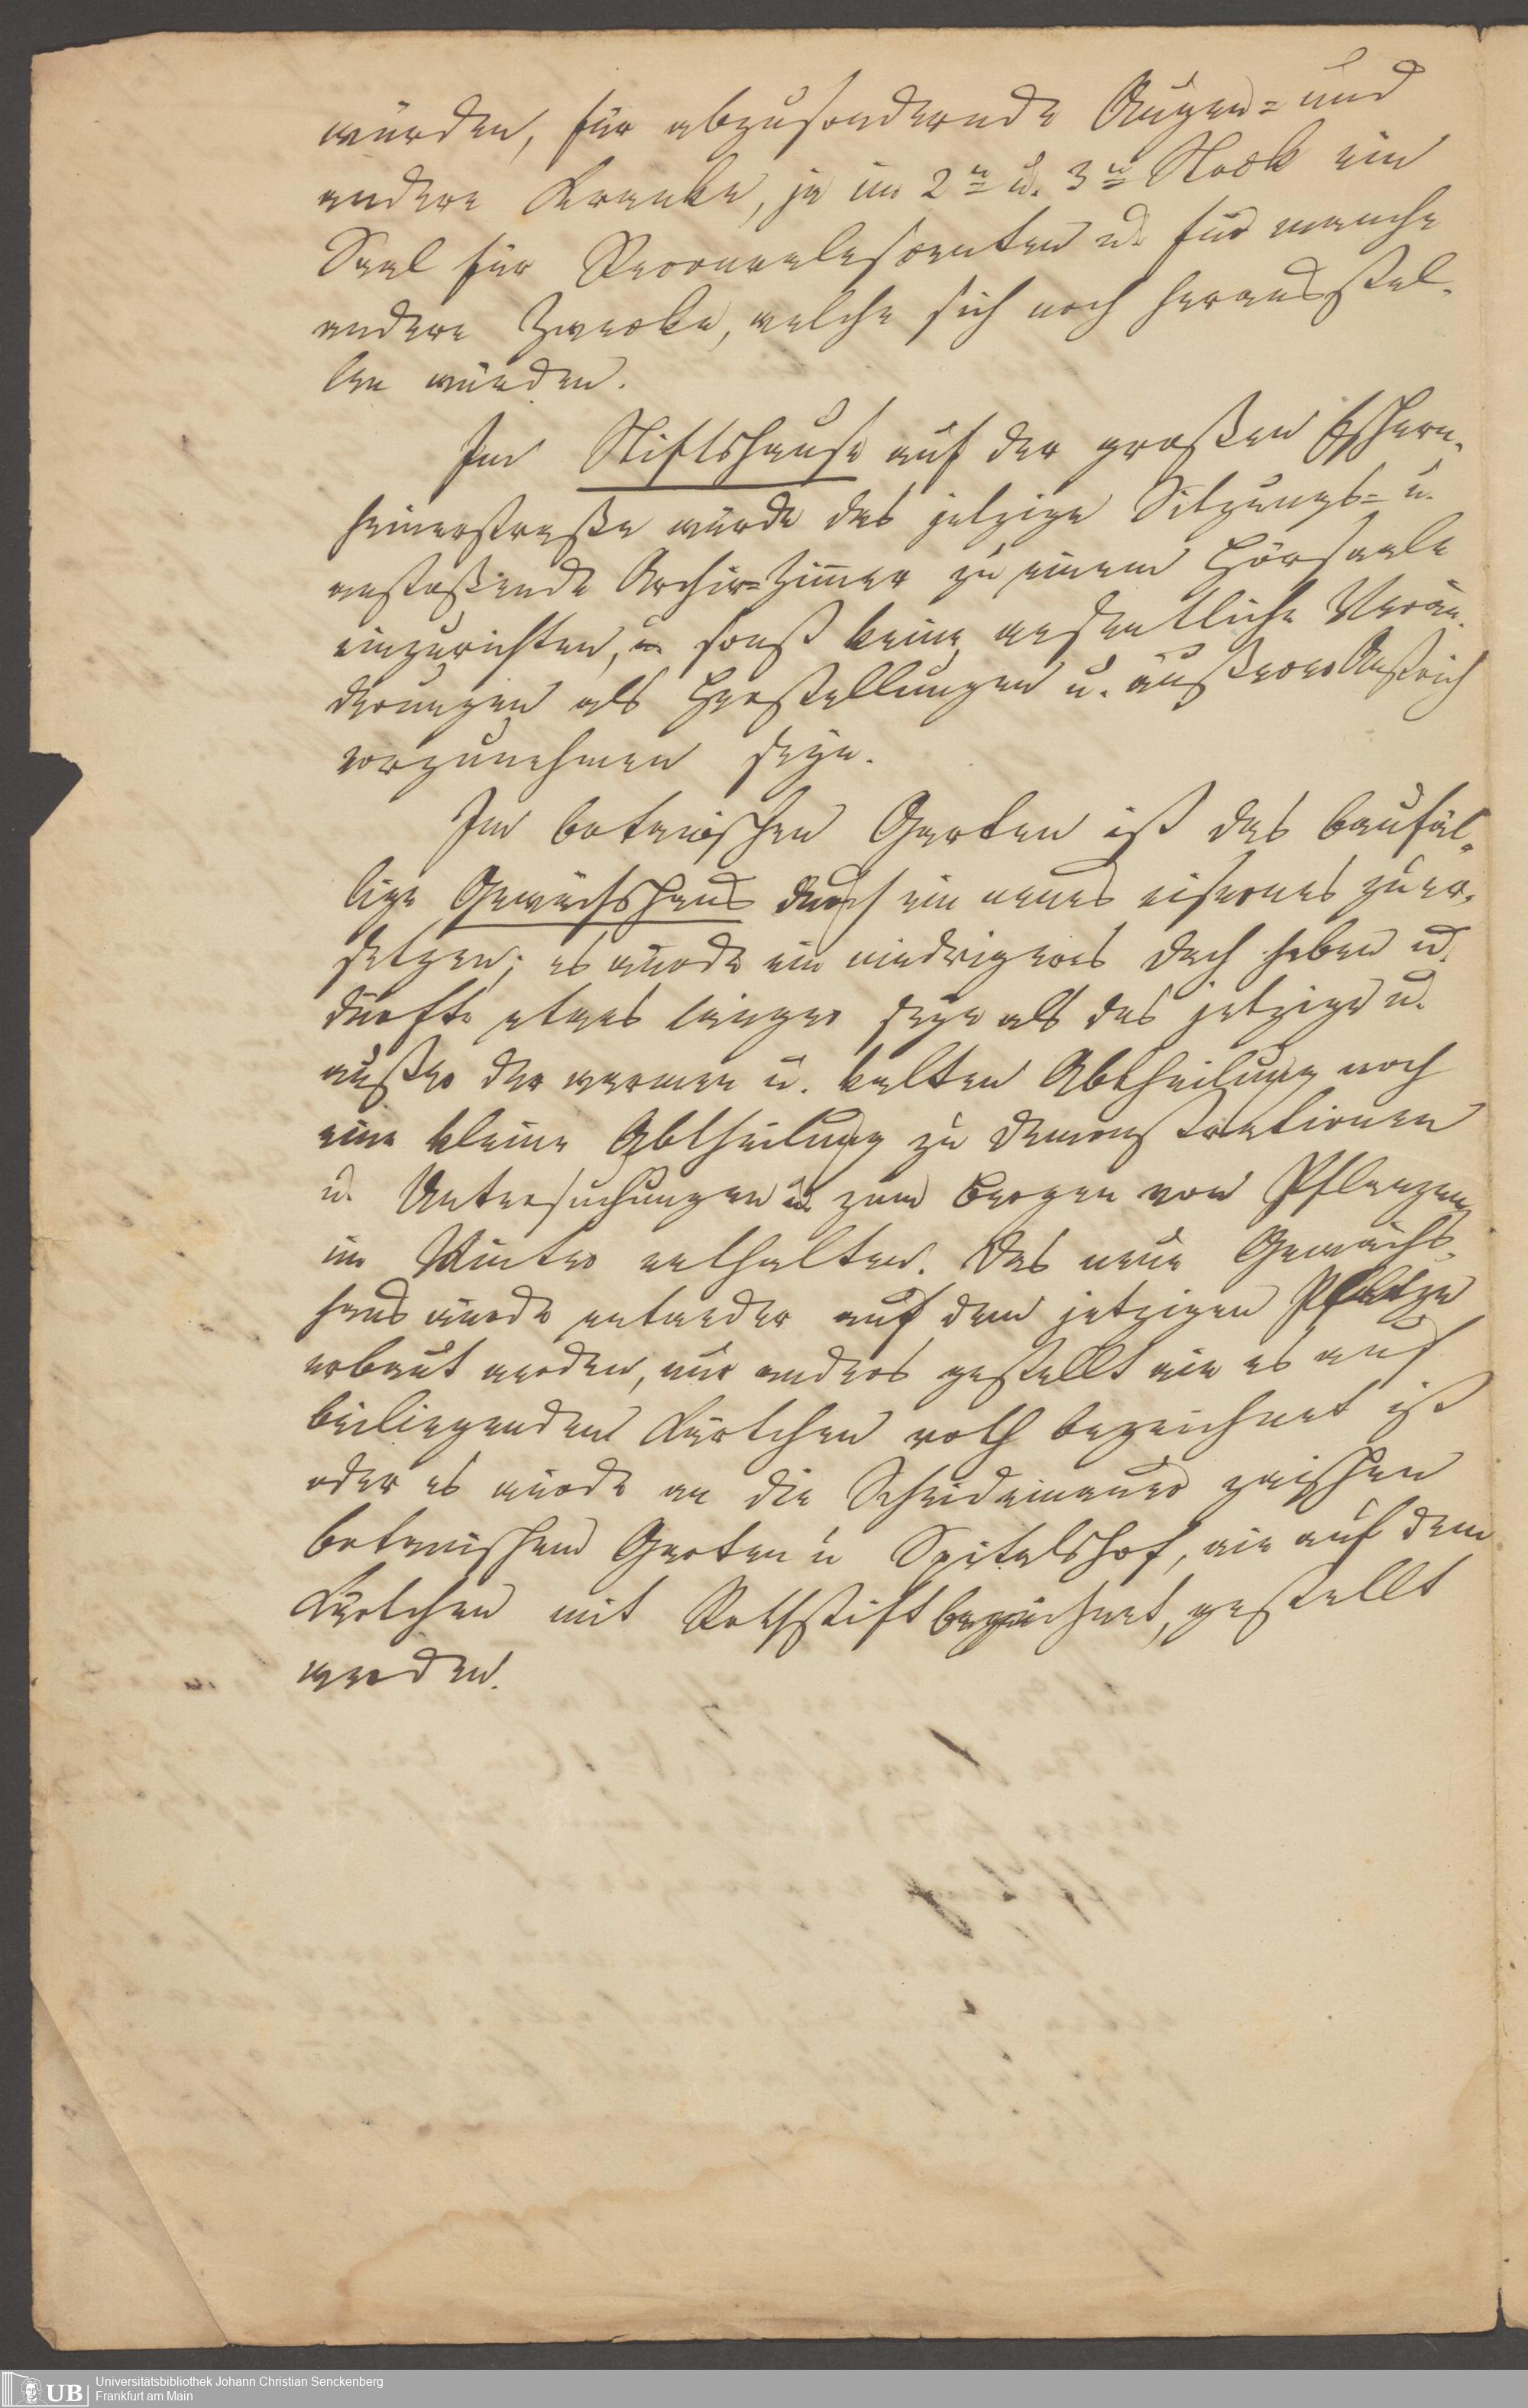 würden, für abzusondernde Augen= und
andere Kranke, je im 2n u. 3n Stock ein
Saal für Reconvalescenten u. für manche
andere Zwecke, welche sich noch herausstel-
len würden.
Im Stiftshause auf der großen Eschern-
heimerstraße würde das jetzige Sitzungs= u.
anstoßende Archiv=Zimmer zu einem Hörsaale
einzurichten, u. sonst keine wesentliche Verän-
derungen als Herstellungen u. äußerer Anstrich
vorzunehmen seyn.
Im botanischen Garten ist das baufäl-
lige Gewächshaus durch ein neues eisernes zu er-
setzen; es würde ein niedrigeres Dach haben u.
dürfte etwas länger seyn als das jetzige u.
außer der warmen u. kalten Abtheilung noch
eine kleine Abtheilung zu Demonstrationen
u. Untersuchungen u. zum Bergen von Pflanzen
im Winter enthalten. Das neue Gewächs-
haus würde entweder auf dem jetzigen Platze
erbaut werden, nur anders gestellt wie es auf
beiliegendem Kärtchen roth bezeichnet ist
oder es würde an die Scheidemauer zwischen
botanischem Garten u Spitalshof, wie auf dem
Kärtchen mit Rothstift bezeichnet, gestellt
werden.
Universitätsbibliothek Johann Christian Senckenberg
Frankfurt am Main
UB